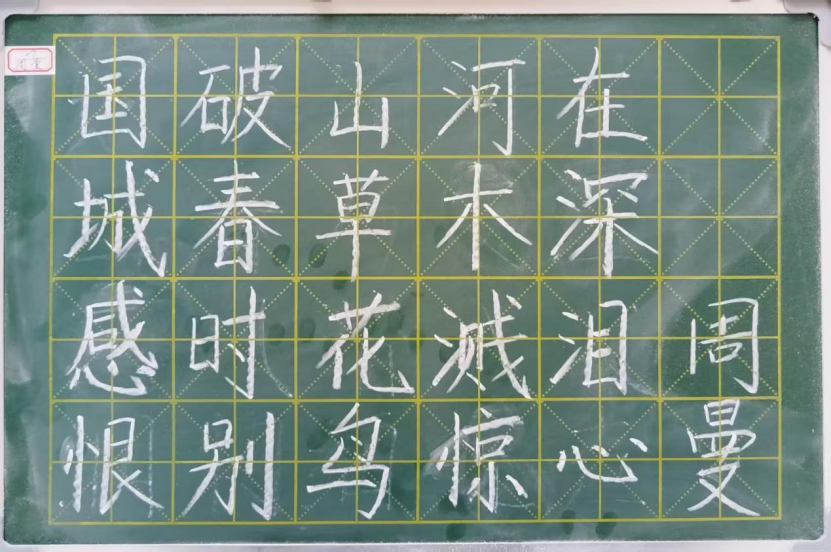 国破山河在
城春草木深
感时花溅泪周
恨别鸟惊心曼